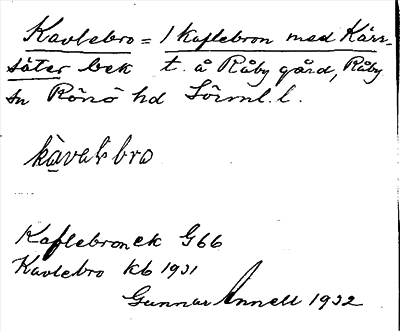 Kavlebro = 1 kaflebron med Kärr-
säter bek t. å Råby gård, Råby
sn Rönö hd Sörml. l.
kàvəlsbro
Kaflebron ek G66
Kavlebro kb 1931
Gunnar Annell 1932